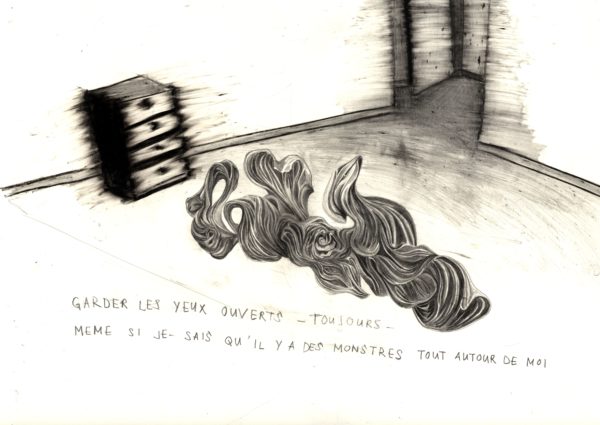 GARDER LES YEUX OUVERTS _TOUJOURS_
MEME SI JE- SAIS QU'IL Y A DES MONSTRES TOUT AUTOUR DE MOI